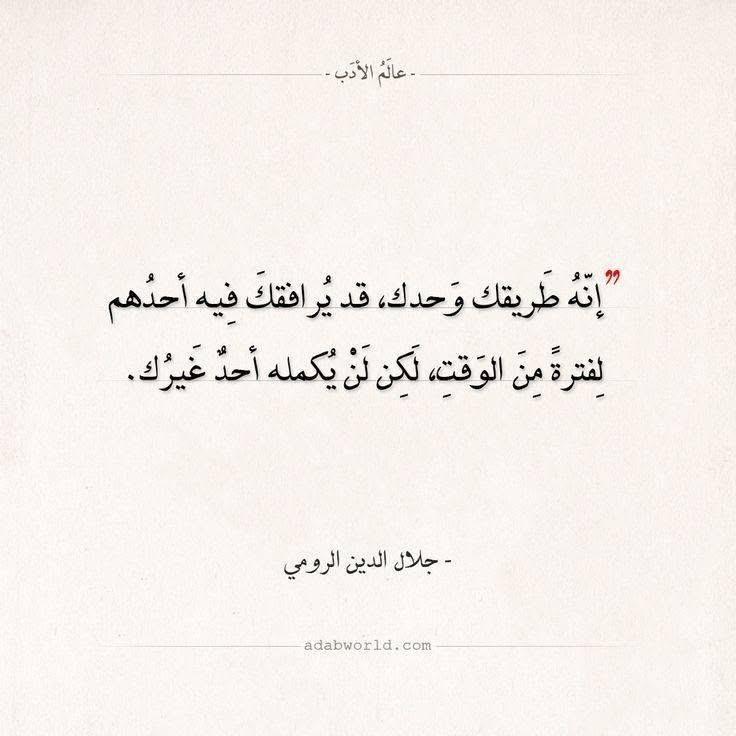 - عالَمُ الأدَب -
” إنّهُ طَريقك وَحدك، قد يُرافقكَ فِيه أحدُهم
لِفترةً مِنَ الوَقتِ، لَكِن لَنْ يُكمله أحدٌ غَيرُك.
- جلال الدين الرومي
adabworld.com